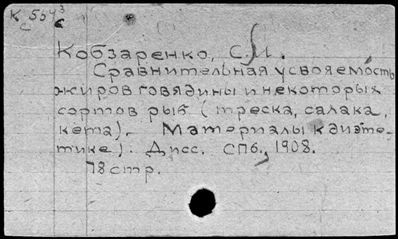 Кобзаренко, С. И.
Сравнительная усвояемость
жиров говядины и некоторых
сортов рыб (треска, салака,
кета). Материалы к диэте-
тике). Дисс. СПб., 1908.
78 стр.